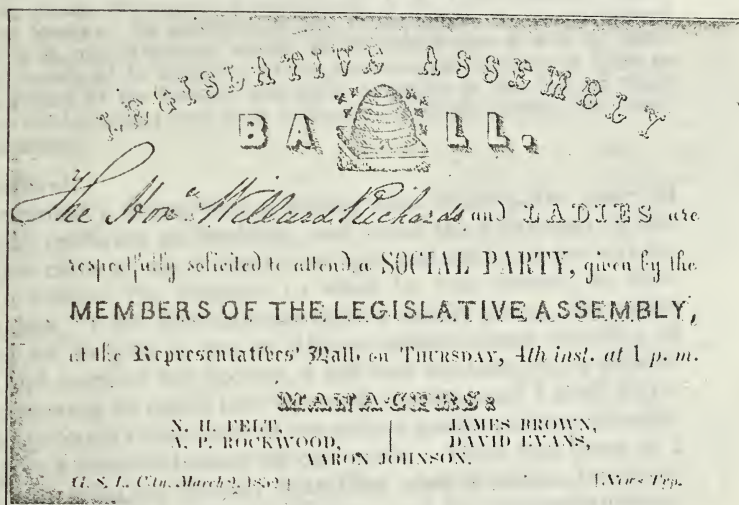 LEGISLATIVE ASSEMBLY
BALL.
The Hon. Willard Richards and LADIES are
respectfully solicited to attend a SOCIAL PARTY, given by the
MEMBERS OF THE LEGISLATIVE ASSEMBLY,
at the Representatives' Hall, on THURSDAY, 4th inst. at 1 p. m.
MANAGERS:
N. H. FELT, JAMES BROWN,
A. P. ROCKWOOD, DAVID EVANS,
AARON JOHNSON.
G. S. L. City, March 2, 1852 News Typ.